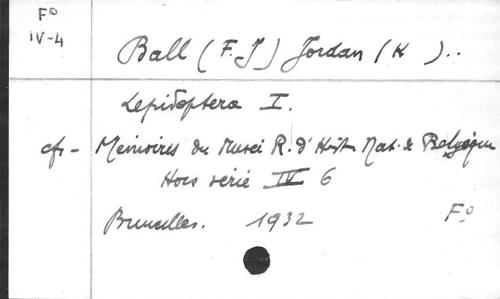 Fo
IV-4
Ball (F. J) Jordan (K )..
Lepidoptera I.
cfr - Mémoires du Musei R. d'Hist. Nat. de Belgique
Hors série IV 6
Bruxelles. 1932 Fo